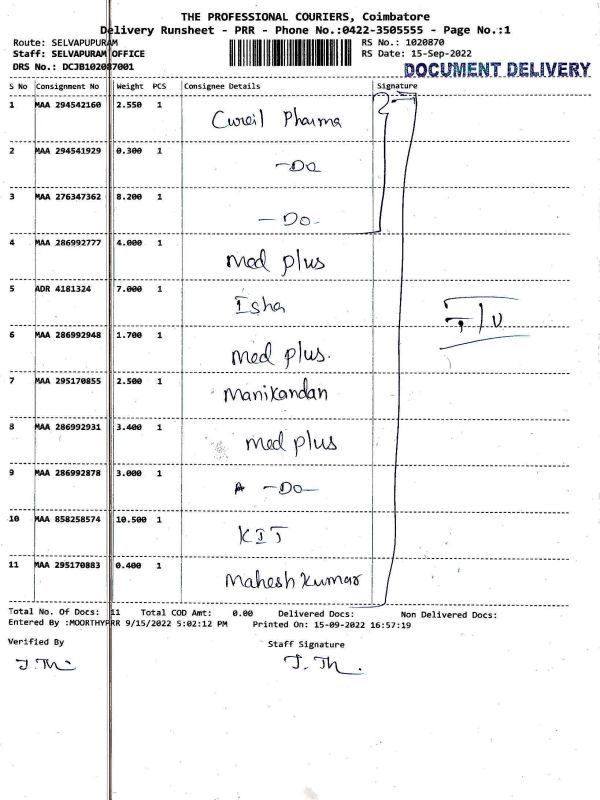 THE PROFESSIONAL COURIERS, Coimbatore
Delivery Runsheet - PRR - Phone No.:0422-3505555 - Page No.:1
Route: SELVAPUPURAM RS No.: 1020870
Staff: SELVAPURAM OFFICE RS Date: 15-Sep-2022
DRS No.: DCJB102087001 DOCUMENT DELIVERY
S No Consignment No Weight PCS Consignee Details Signature
1 MAA 294542160 2.550 1 Cureil Pharma
2 MAA 294541929 0.300 1 -Do
3 MAA 276347362 8.200 1 -Do-
4 MAA 286992777 4.000 1 med plus
5 ADR 4181324 7.000 1 Isha
6 MAA 286992948 1.700 1 med plus.
7 MAA 295170855 2.500 1 Manikandan
8 MAA 286992931 3.400 1 med plus
9 MAA 286992878 3.000 1 -Do-
10 MAA 858258574 10.500 1 KIT
11 MAA 295170883 0.400 1 Mahesh Kumar
Total No. Of Docs: 11 Total COD Amt: 0.00 Delivered Docs: Non Delivered Docs:
Entered By :MOORTHYPRR 9/15/2022 5:02:12 PM Printed On: 15-09-2022 16:57:19
Verified By Staff Signature
J.Th J.Th.